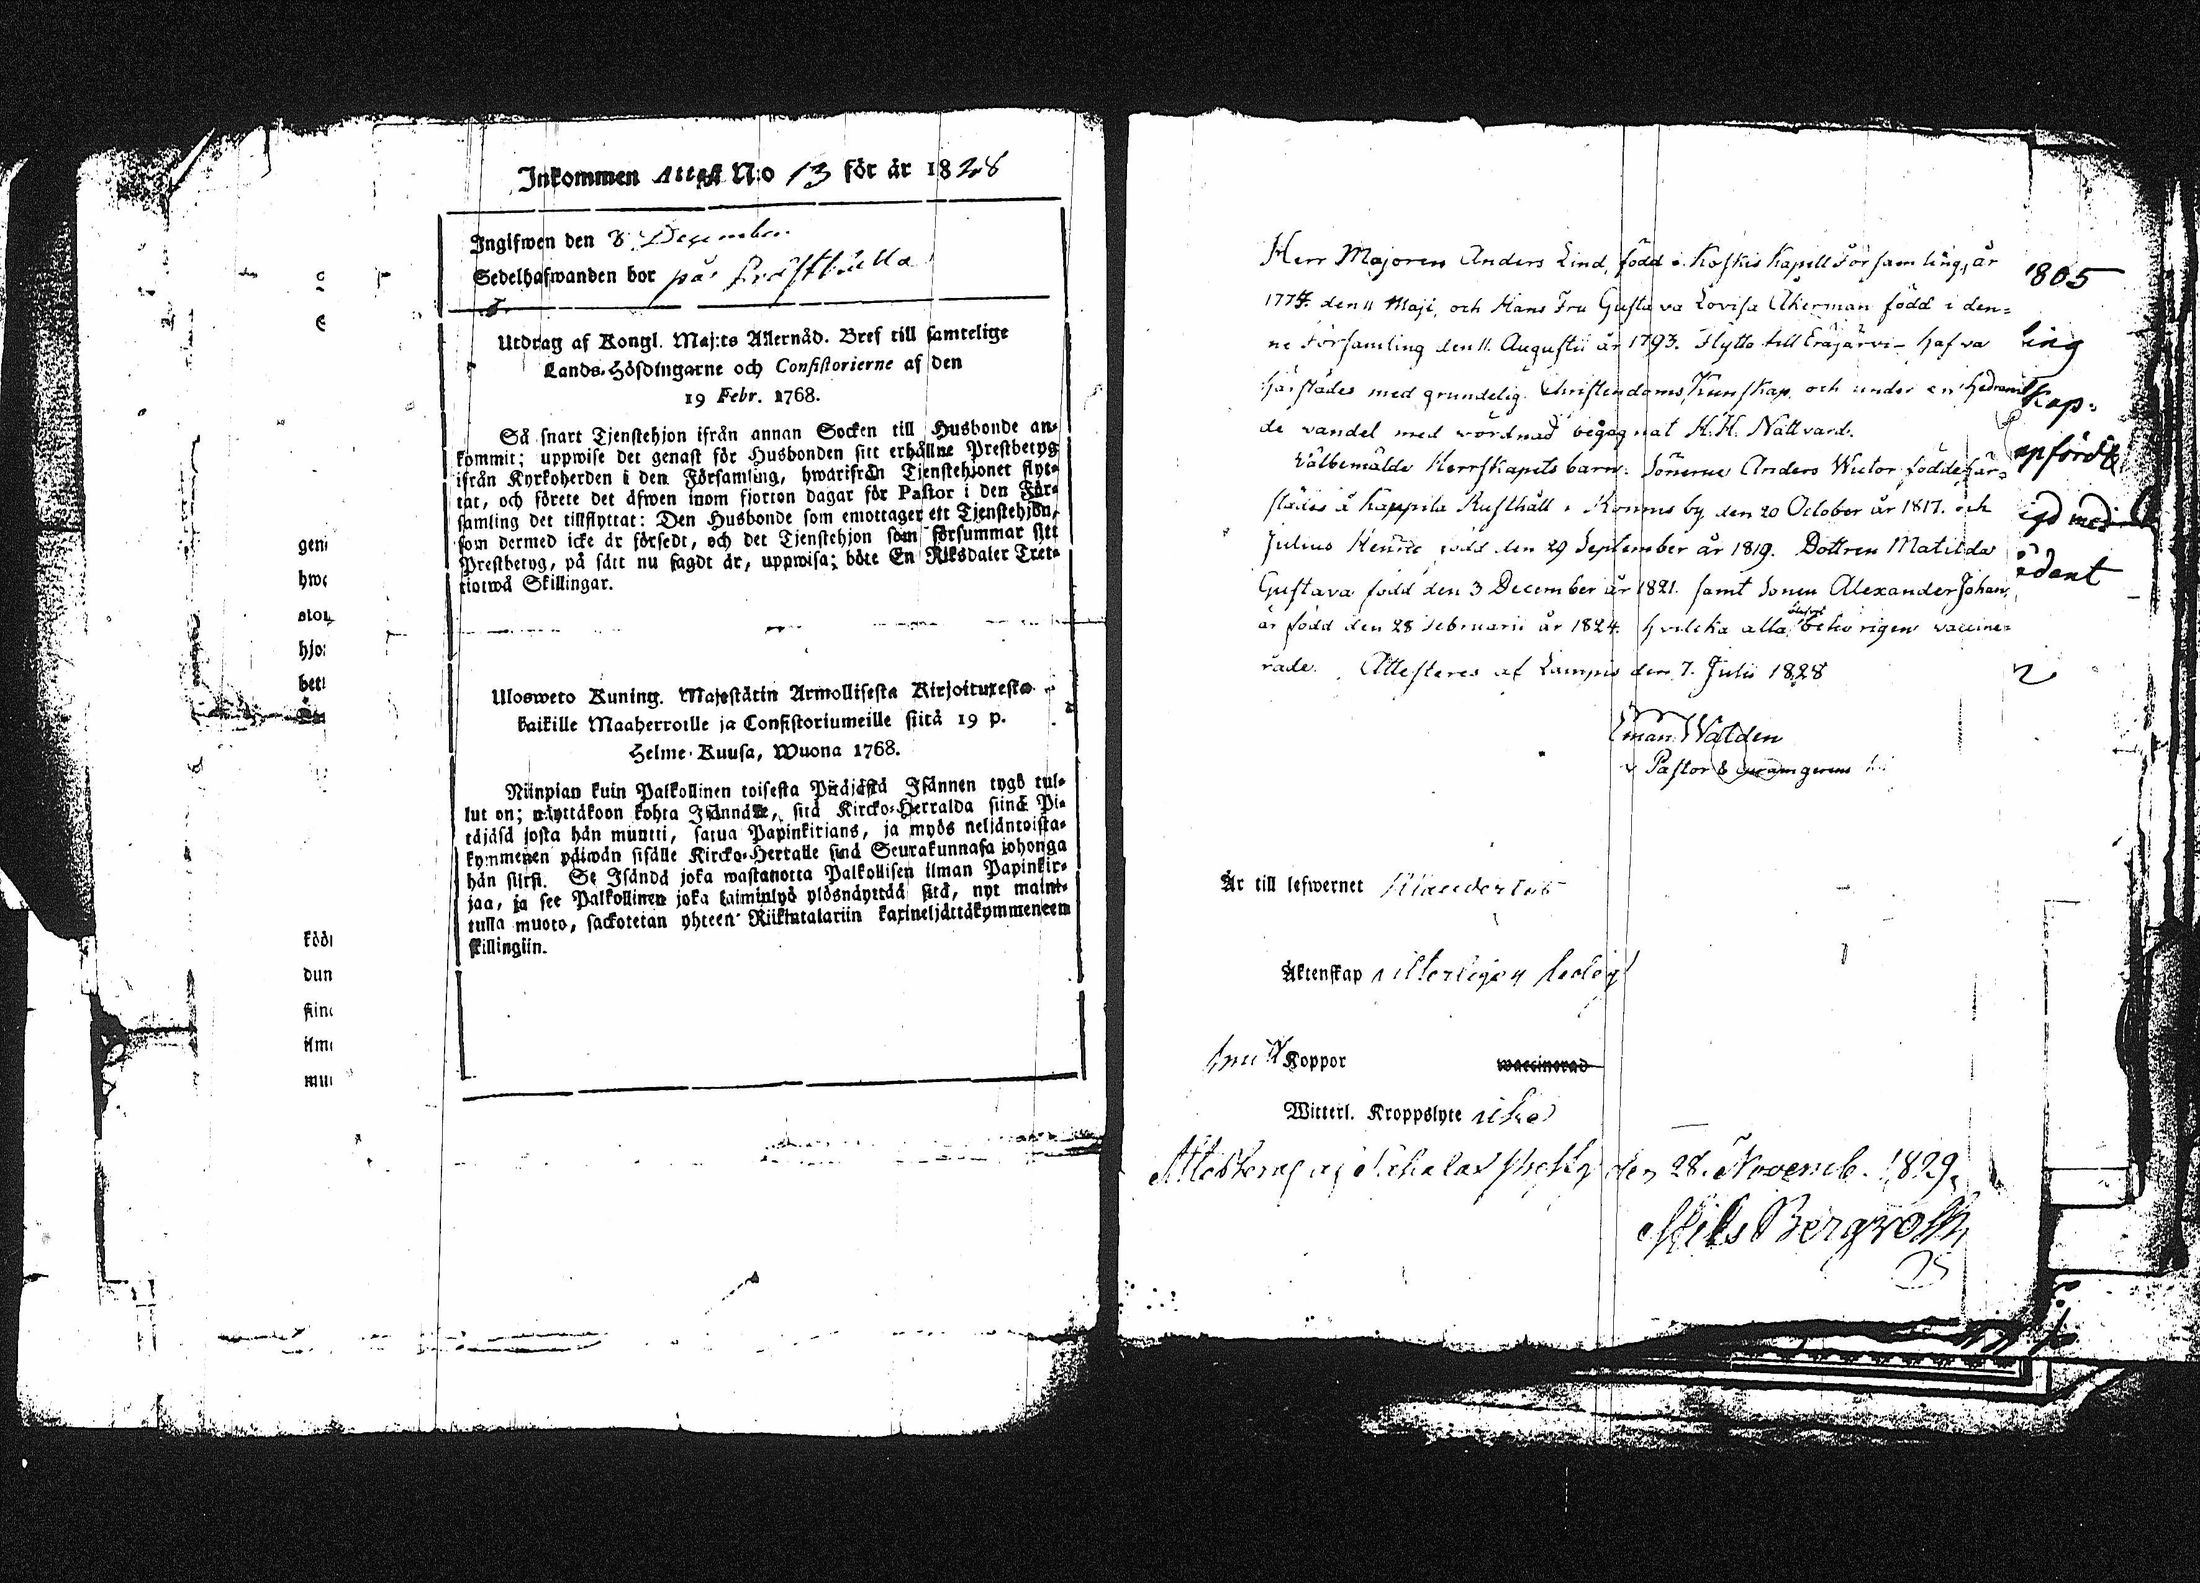 Inkommen Attest N:o 13 för år 1828
Ingifwen den 8 December
Sedelhafwanden bor på Prästkulla
Utdrag af Kongl. Maj:ts Allernåd. Bref till samtelige
Lands-Höfdingarne och Consistorierne af den
19 Febr. 1768.
Så snart Tjenstehjon ifrån annan Socken till Husbonde an-
kommit; uppwise det genast för Husbonden sitt erhållne Prestbetyg
ifrån Kyrkoherden i den Församling, hwarifrån Tjenstehjonet flyt-
tat, och förete det äfwen inom fjorton dagar för Pastor i den För-
samling det tillflyttat: Den Husbonde som emottager ett Tjenstehjon,
som dermed icke är försedt, och det Tjenstehjon som försummar sitt
Prestbetyg, på sätt nu sagdt är, uppwisa; böte En Riksdaler Tret-
tiotwå Skillingar.
Ulosweto Kuning. Majestätin Armollisesta Kirjoituxesta
kaikille Maaherroille ja Consistoriumeille siitä 19 p.
Helme-Kuusa, Wuona 1768.
Niinpian kuin Palkollinen toisesta Pitäjästä Isännen tygö tul-
lut on; näyttäkoon kohta Isännälle, sitä Kircko-Herralda siinä Pi-
täjäsä josta hän muutti, saatua Papinkirjans, ja myös neljäntoista-
kymmenen päiwän sisälle Kircko-Herralle siinä Seurakunnasa johonga
hän siirsi. Se Isändä joka wastanotta Palkollisen ilman Papinkir-
jaa, ja see Palkollinen joka laiminlyö ylösnäyttää sitä, nyt maini-
tulla muoto, sackotetan yhteen Riikintalariin kaxineljättäkymmeneen
skillingiin.
gen
hwe
hjo
bet
dun
ilm
mu
Herr Majoren Anders Lind, född i Koskis Kapell Församling, år
1774. den 11 Maji, och Hans Fru Gustava Lovisa Åkerman född i den-
ne Församling den 11. Augusti år 1793. Flytta till Eräjärvi - hafva
härstädes med grundelig Christendoms Kunskap och under en hedran-
de vandel med vördnad begagnat H.H. Nattvard.
Välbemälde Herrskapets barn: Sönerne Anders Victor födde här-
städes å Kappila Rusthåll i Konnis by den 20 October år 1817. och
Julius Henric född den 29 September år 1819. Dottren Matilda
Gustava född den 3 December år 1821. samt Sonen Alexander Johan,
är född den 28 Februarii år 1824. hvilka alla behörigen vaccine-
rade. Attesteres af Lampis den 7. Julii 1828
Eman. Walden
v Pastor
1805
ling
kap-
pförd
ed med
dant
Är till lefwernet
Äktenskap witterligen ledig
haft Koppor waccinerad
Witterl. Kroppslyte utan
Attesteras af den 28. Novemb. 1829.
Nils Bergroth